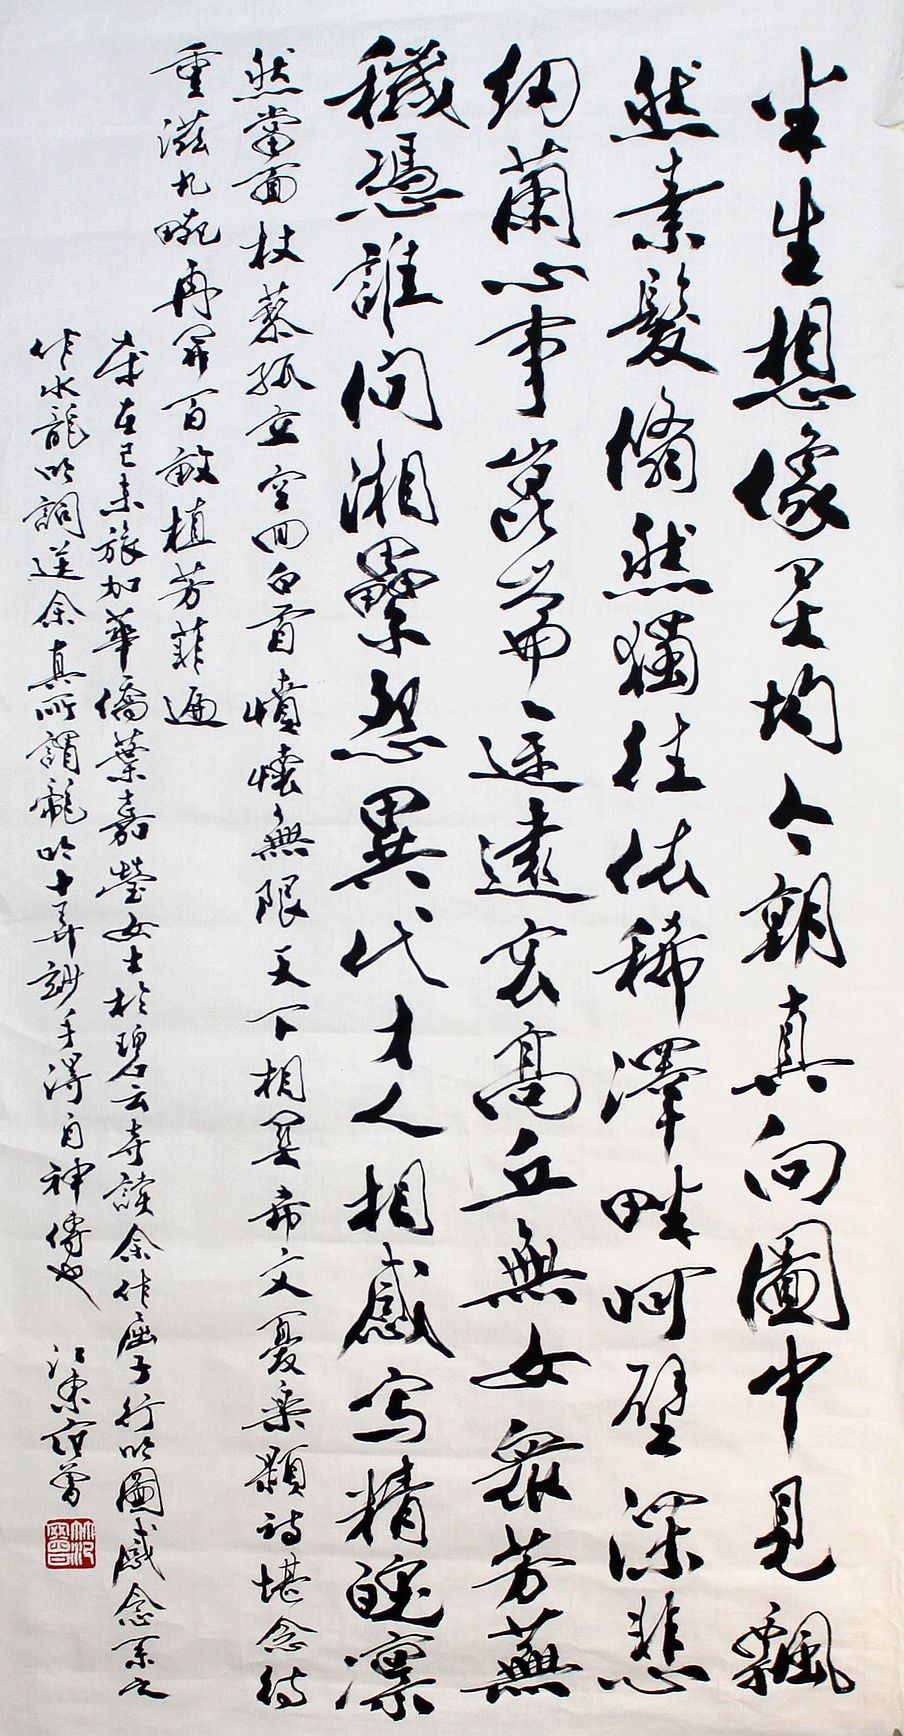 半生想像灵均今朝真向圖中見飄
然素髮翛然獨往依稀澤畔呵壁深悲
紉蘭心事崑崙途遠哀高丘無女衆芳蕪
穢憑誰问湘纍怨異代才人相感寫精魄凛
然當面杖藜孤立空回白首憤懷無限天下相關希文憂樂顥詩堪念待
重滋九畹再開百畝植芳菲遍
歲在已未旅加華僑葉嘉瑩女士於碧云寺讀余作屈子行吟圖感念系之
作水龍吟詞送余真所謂龍吟十弄妙手得自神傳也 江東范曾